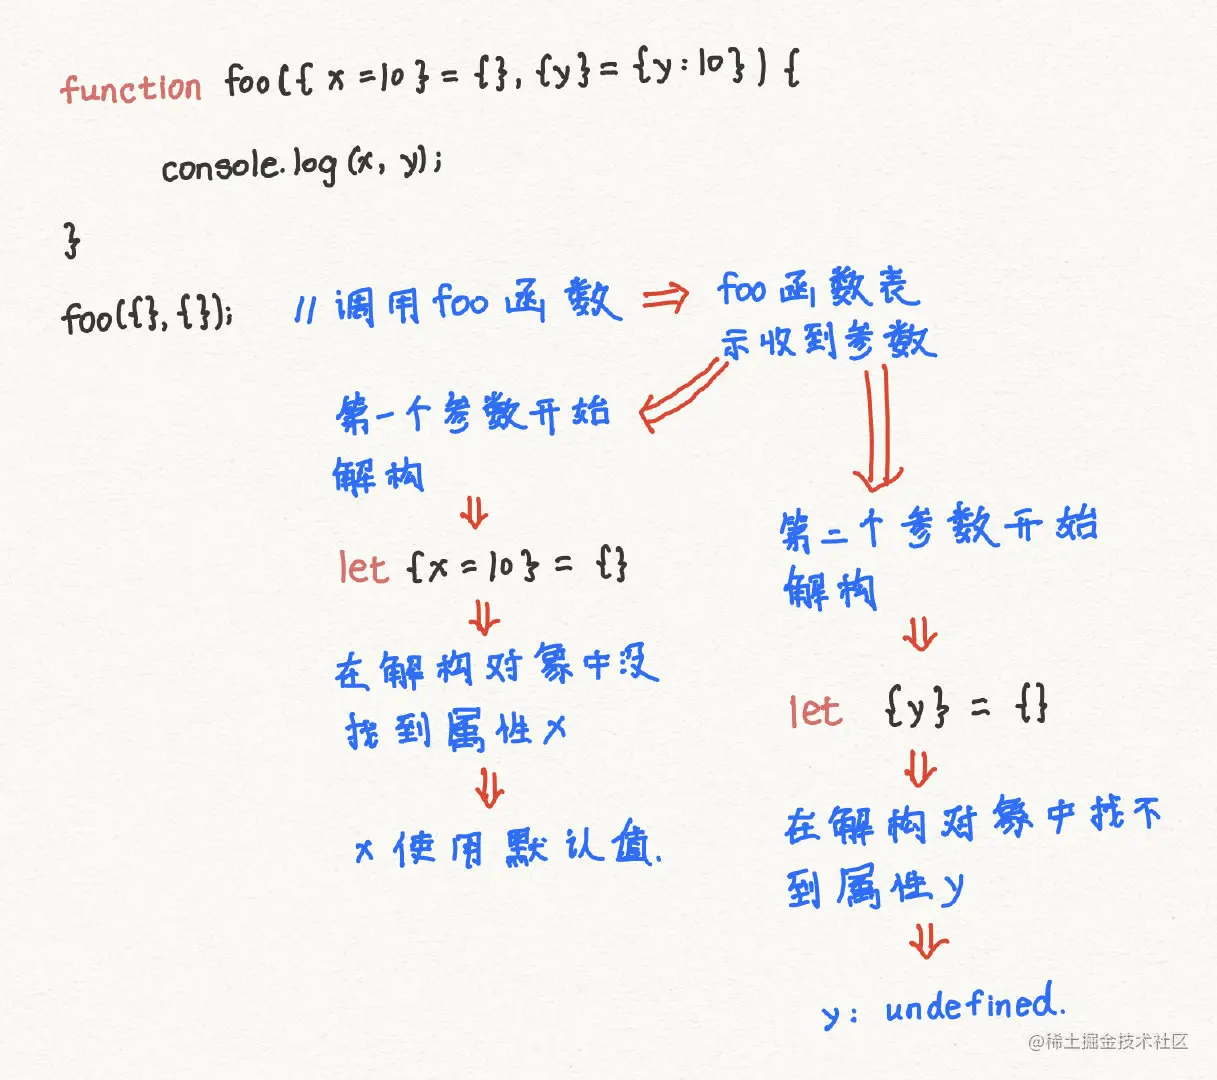 function foo({ x = 10 } = {}, {y} = {y: 10}) {
console.log(x, y);
}
foo({}, {}); // 调用foo函数 ⇒ foo函数表
示收到参数
第一个参数开始
解构
⇓
let {x = 10} = {}
⇓
在解构对象中没
找到属性x
⇓
x使用默认值.
第二个参数开始
解构
⇓
let {y} = {}
⇓
在解构对象中找不
到属性y
⇓
y: undefined.
@稀土掘金技术社区